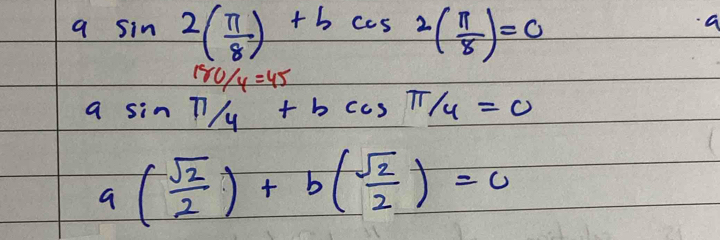 a sin 2(π/8) + b cos 2(π/8) = 0
180/4=45
a sin π/4 + b cos π/4 = 0
a (√2/2) + b (√2/2) = 0
a